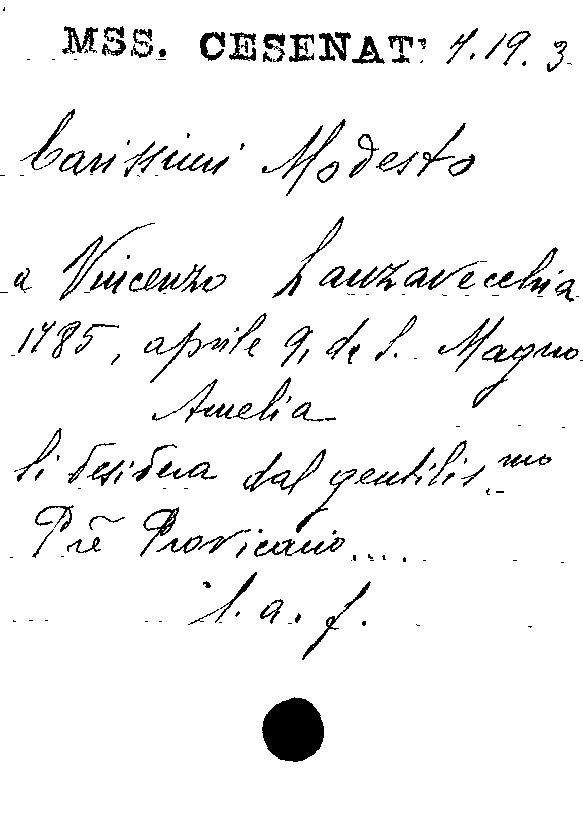 MSS. CESENAT. 7.19.3
Carissimi Modesto
a Vincenzo Lanzavecchia
1785, aprile 9, da S. Magno
Amelia
Si desidera dal gentilis.mo
Prē Provicario....
l. a. f.